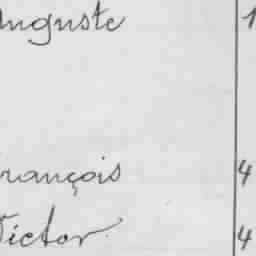 Auguste 1
François 4
Victor 4